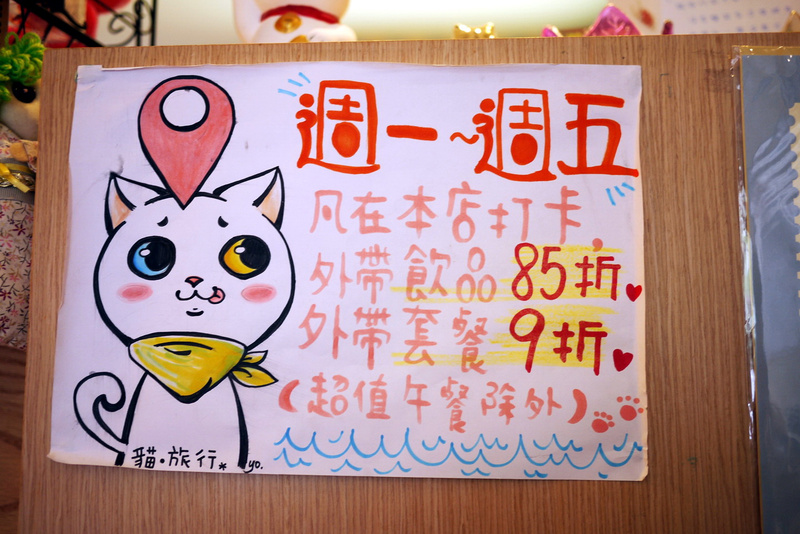 週一~週五
凡在本店打卡,
外帶飲品85折
外帶套餐9折
(超值午餐除外)
貓·旅行。yo.